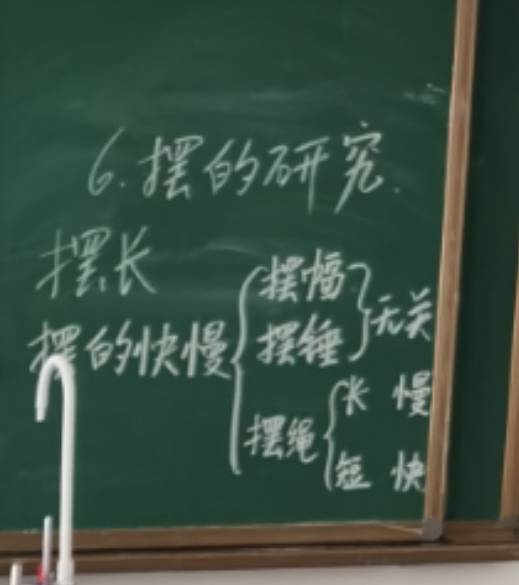 6.摆的研究.
摆长
摆的快慢
摆幅
摆锤
无关
摆绳
长 慢
短 快